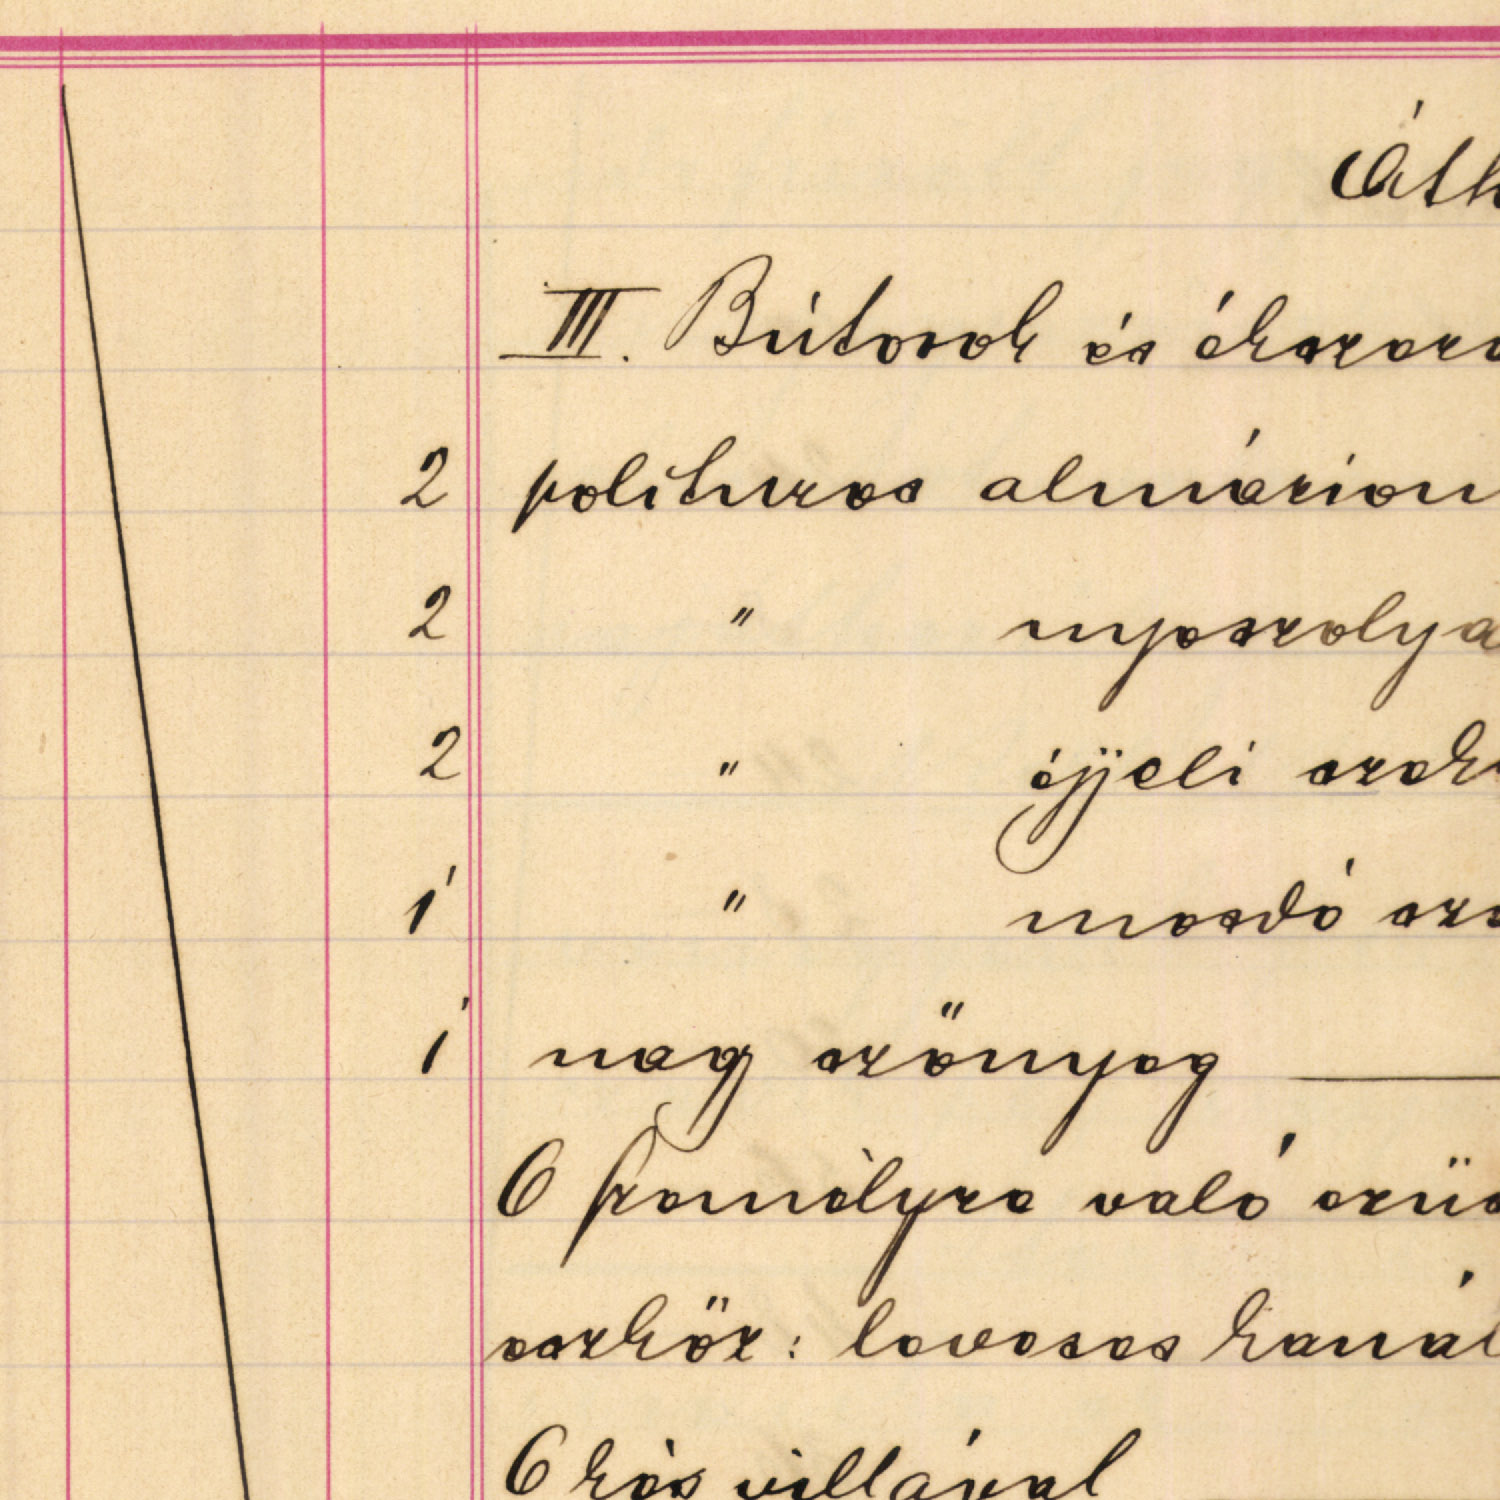 Áth
III. Bútorok és éksze
2 polituros almáriom
2 " nyoszolya
2 " éjjeli szek
1 " mosdó sz
1 nagy szőnyeg
6 személyre való ezüs
eszköz: leveses kanál
6 kés villával